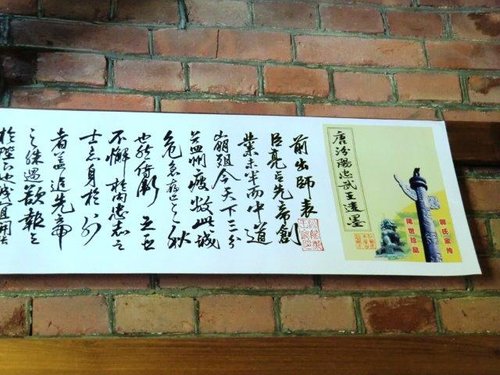 唐汾陽忠武王遺墨
郭氏家傳
前出師表
臣亮言先帝創
業未半而中道
崩殂今天下三分
益州疲敝此誠
危急存亡之秋
也然侍衛之臣
不懈於内忠志之
士忘身於外
者蓋追先帝
之殊遇欲報之
於陛下也誠宜開